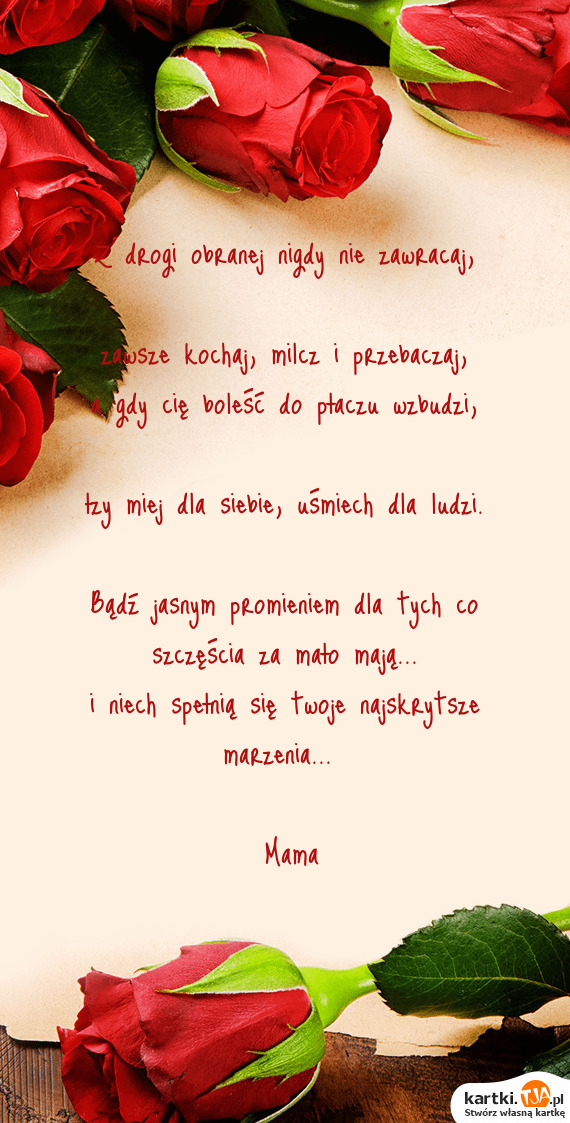 Z drogi obranej nigdy nie zawracaj,
zawsze kochaj, milcz i przebaczaj,
a gdy cię boleść do płaczu wzbudzi,
łzy miej dla siebie, uśmiech dla ludzi.
Bądź jasnym promieniem dla tych co
szczęścia za mało mają...
i niech spełnią się twoje najskrytsze
marzenia...
Mama
kartki.TJA.pl
Stwórz własną kartkę